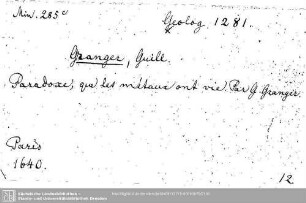 Min. 285 c
Geolog. 1281.
Granger, Guill.
Paradoxe, que les métaux ont vie. Par G. Granger.
Paris
1640.
12
Sächsische Landesbibliothek -
Staats- und Universitätsbibliothek Dresden